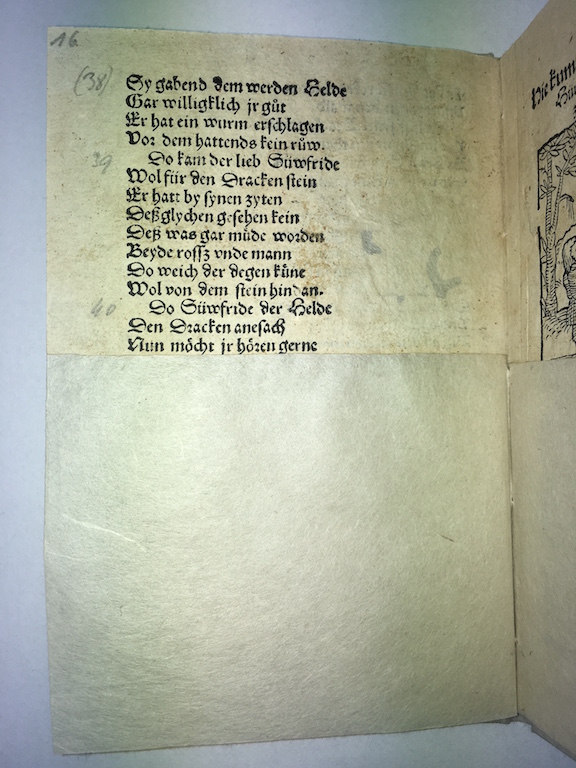 16
(38)
Sy gabend dem werden Helde
Gar willigklich jr gůt
Er hat ein wurm erschlagen
Vor dem hattends kein růw.
39
Do kam der lieb Süwfride
Wol für den Dracken stein
Er hatt by synen zyten
Deßglychen gesehen kein
Deß was gar müde worden
Beyde rossz vnde mann
Do weich der degen küne
Wol von dem stein hindan.
40
Do Süwfride der Helde
Den Dracken anesach
Nun möcht jr hören gerne